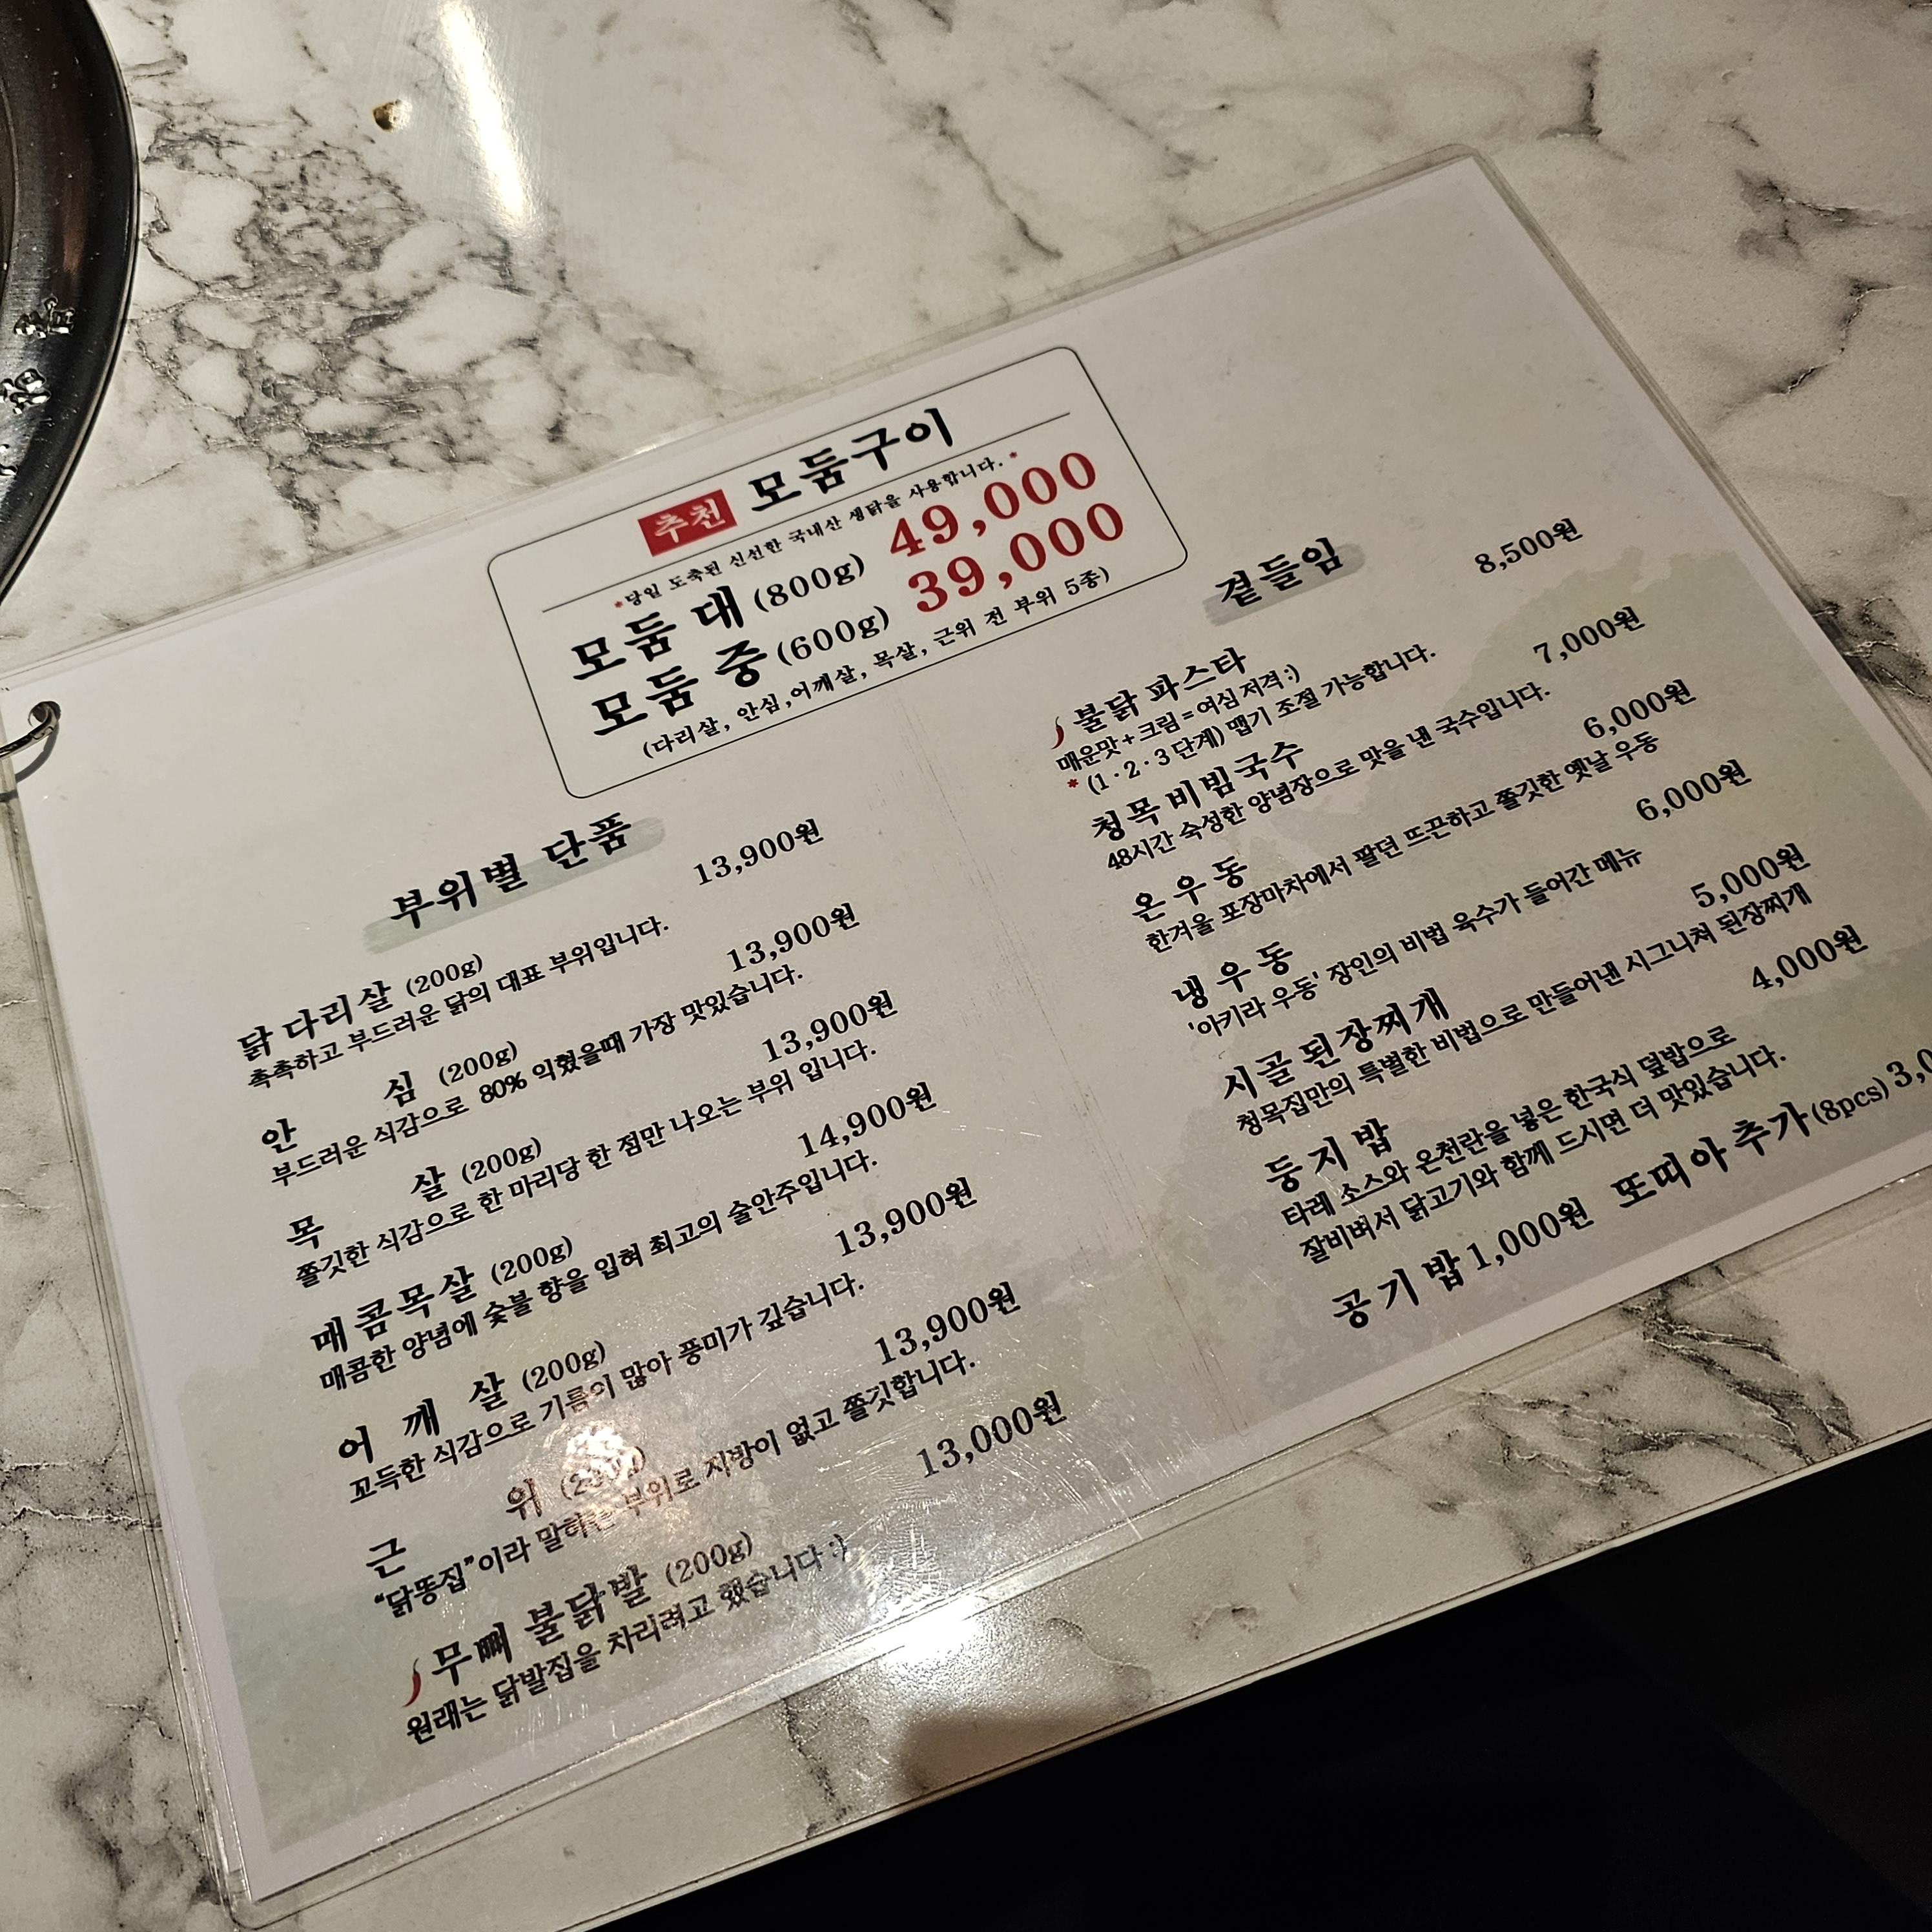 추천 모둠구이
*당일 도축된 신선한 국내산 생닭을 사용합니다.*
모둠 대 (800g) 49,000
모둠 중 (600g) 39,000
(다리살, 안심, 어깨살, 목살, 근위 전 부위 5종)
부위별 단품
닭다리살 (200g) 13,900원
촉촉하고 부드러운 닭의 대표 부위입니다.
안 심 (200g) 13,900원
부드러운 식감으로 80% 익혔을때 가장 맛있습니다.
목 살 (200g) 13,900원
쫄깃한 식감으로 한 마리당 한 점만 나오는 부위 입니다.
매콤목살 (200g) 14,900원
매콤한 양념에 숯불 향을 입혀 최고의 술안주입니다.
어 깨 살 (200g) 13,900원
꼬득한 식감으로 기름이 많아 풍미가 깊습니다.
근 위 (200g) 13,900원
“닭똥집”이라 말하는 부위로 지방이 없고 쫄깃합니다.
무뼈 불닭발 (200g) 13,000원
원래는 닭발집을 차리려고 했습니다 :)
곁들임
불닭 파스타 8,500원
매운맛+크림=여심 저격:)
* (1·2·3단계) 맵기 조절 가능합니다.
청목비빔국수 7,000원
48시간 숙성한 양념장으로 맛을 낸 국수입니다.
온우동 6,000원
한겨울 포장마차에서 팔던 뜨끈하고 쫄깃한 옛날 우동
냉우동 6,000원
'아키라 우동' 장인의 비법 육수가 들어간 메뉴
시골된장찌개 5,000원
청목집만의 특별한 비법으로 만들어낸 시그니쳐 된장찌개
둥지밥 4,000원
타레 소스와 온천란을 넣은 한국식 덮밥으로
잘비벼서 닭고기와 함께 드시면 더 맛있습니다.
공기밥 1,000원 또띠아추가(8pcs) 3,0